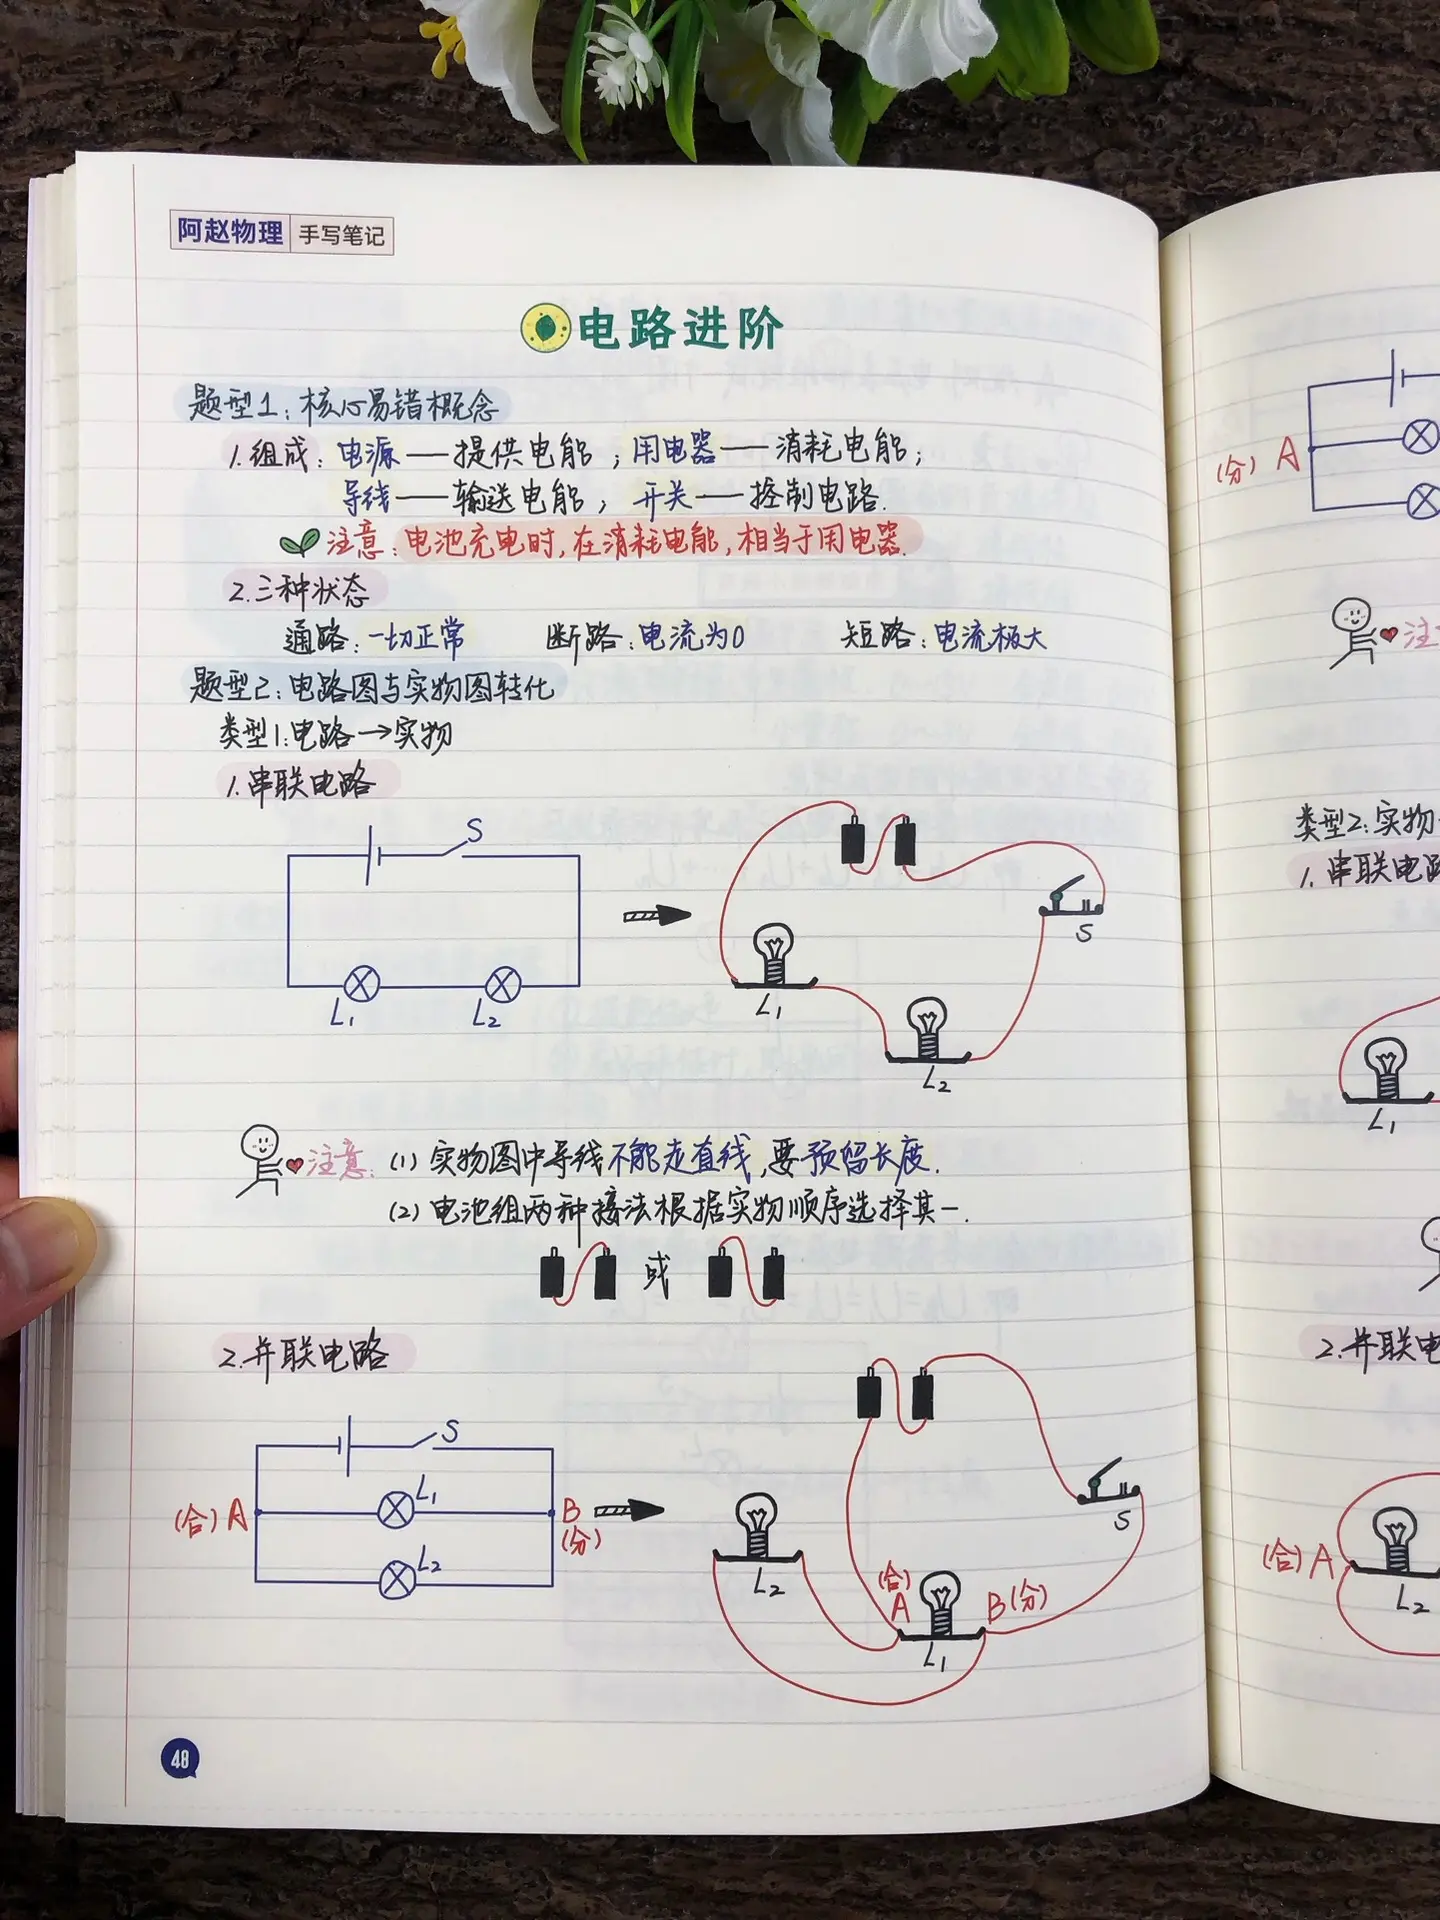 阿赵物理 手写笔记
电路进阶
题型1:核心易错概念
1.组成:电源——提供电能;用电器——消耗电能;
导线——输送电能;开关——控制电路.
注意:电池充电时,在消耗电能,相当于用电器.
2.三种状态
通路:一切正常 断路:电流为0 短路:电流极大
题型2:电路图与实物图转化
类型1:电路→实物
1.串联电路
S
S
L1 L2
L1
L2
注意:(1)实物图中导线不能走直线,要预留长度.
(2)电池组两种接法根据实物顺序选择其一.
或
2.并联电路
S
L1
(合)A B
(分)
L2
S
L2
(合)
A B(分)
L1
48
(分)A
注
类型2:实物
1.串联电路
L1
2.并联电
(合)A
L2